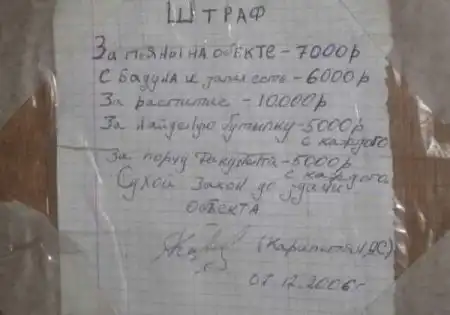 ШТРАФ
За пьяных на объекте - 7000р
С бадуна и запах есть - 6000р
За распитие - 10.000р
За найденую бутылку - 5000р
с каждого
За - 5000р
с каждого
Сухой закон до сдачи
объекта
(Карапетян АС)
07.12.2006г